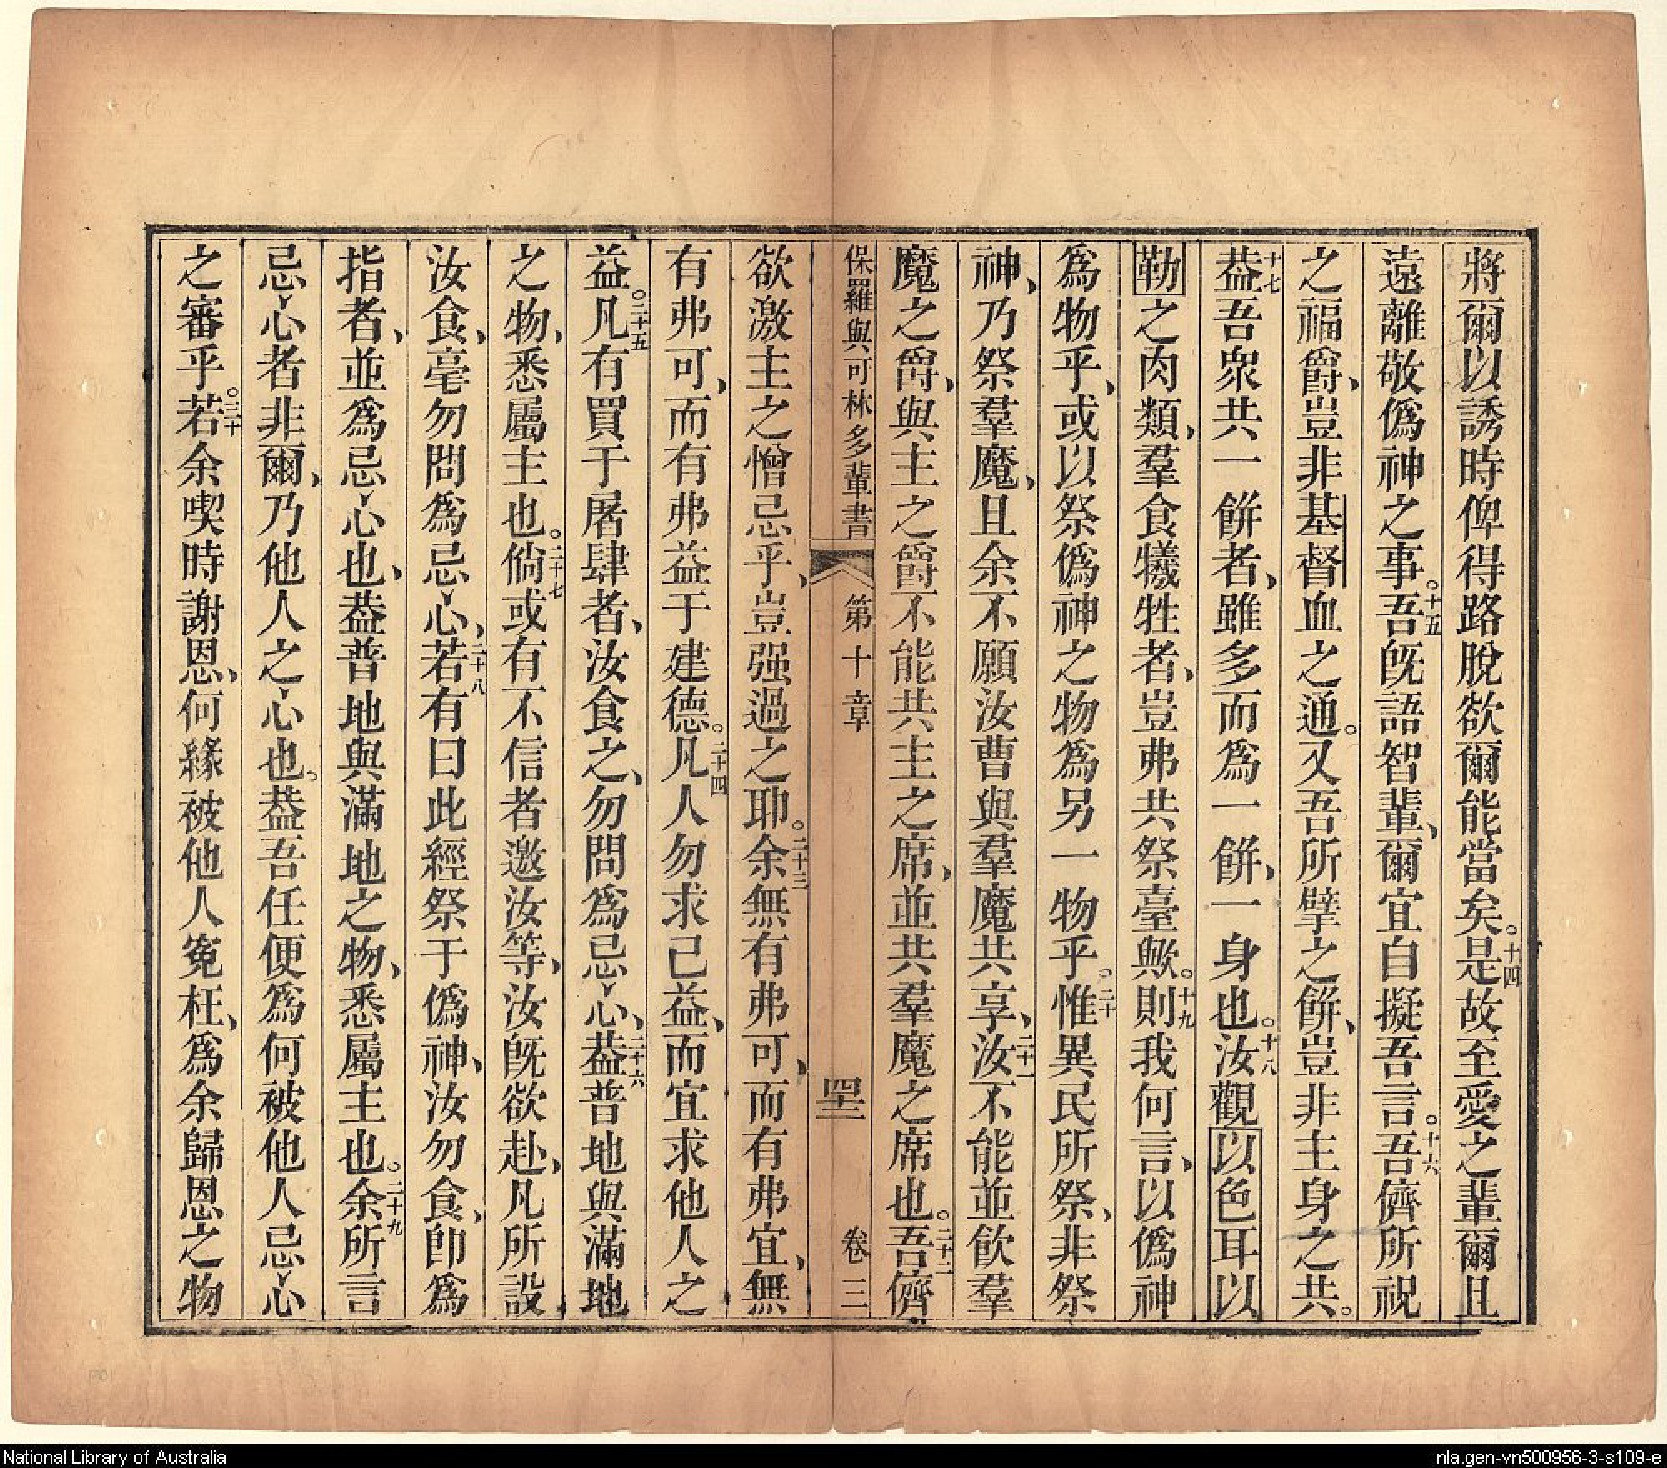 將爾以誘時俾得路脫欲爾能當矣。十四是故至愛之輩爾且
遠離敬僞神之事。十五吾旣語智輩、爾宜自擬吾言。十六吾儕所祝
之福爵、豈非基督血之通。又吾所擘之餅、豈非主身之共。
十七葢吾衆共一餅者、雖多而爲一餅、一身也。十八汝觀以色耳以
勒之肉類、羣食犧牲者、豈弗共祭臺歟。十九則我何言、以僞神
爲物乎、或以祭僞神之物爲另一物乎。二十惟異民所祭、非祭
神、乃祭羣魔、且余不願汝曹與羣魔共享、二十一汝不能並飲羣
魔之爵、與主之爵不能共主之席、並共羣魔之席也。二十二吾儕
保羅與可林多輩書 第十章 四二 卷三
欲激主之憎忌乎、豈强過之耶。二十三余無有弗可、而有弗宜、無
有弗可、而有弗益于建德。二十四凡人勿求己益、而宜求他人之
益。二十五凡有買于屠肆者、汝食之、勿問爲忌心、二十六葢普地與滿地
之物、悉屬主也。二十七倘或有不信者邀汝等、汝旣欲赴、凡所設
汝食、毫勿問爲忌心、二十八若有曰此經祭于僞神、汝勿食、卽爲
指者、並爲忌心也、葢普地與滿地之物、悉屬主也。二十九余所言
忌心者非爾、乃他人之心也。葢吾任便爲何被他人忌心
之審乎。三十若余喫時謝恩、何緣被他人寃枉、爲余歸恩之物
National Library of Australia
nla.gen-vn500956-3-s109-e